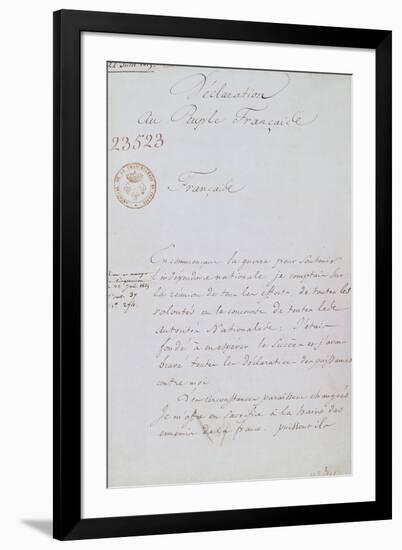 22 Juin 1815
Déclaration
au Peuple Françaide
23523
Françaide
En commençant la guerre pour soutenir
l'indépendance nationale je comptais sur
la reunion de tous les efforts de toutes les
volontés et le concours de toutes les
autorités Nationales; J'étais
fondé à en esperer le Succès et j'avais
bravé toutes les déclaration des puissances
contre moi
circonstances paraissent changées
Je m'offre en sacrifice à la haine des
ennemis de la france. puissent-ils